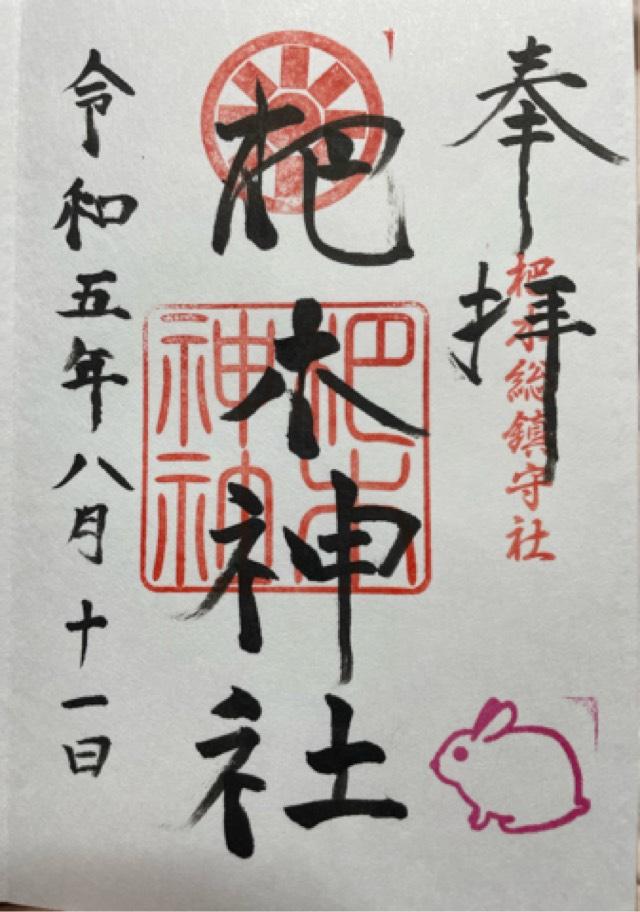 奉拝
杷木総鎮守社
杷木神社
杷木
神社
令和五年八月十一日